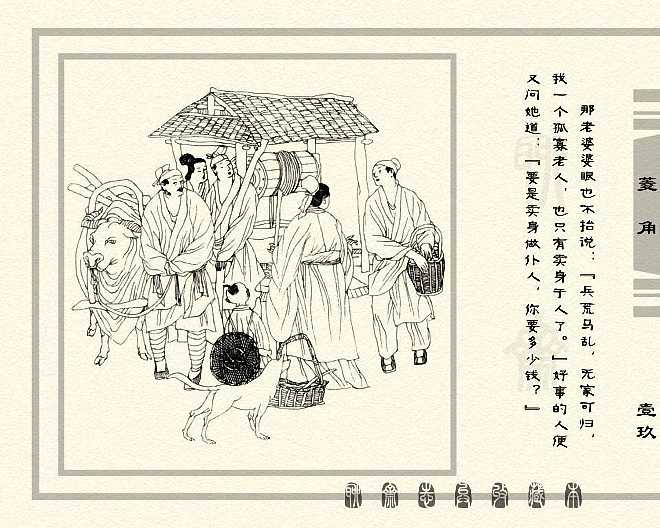 那老婆婆眼也不抬说：『兵荒马乱，无家可归，
我一个孤寡老人，也只有卖身于人了。』好事的人便
又问她道：『要是卖身做仆人，你要多少钱？』
菱角
壹玖
聊斋志异收藏本